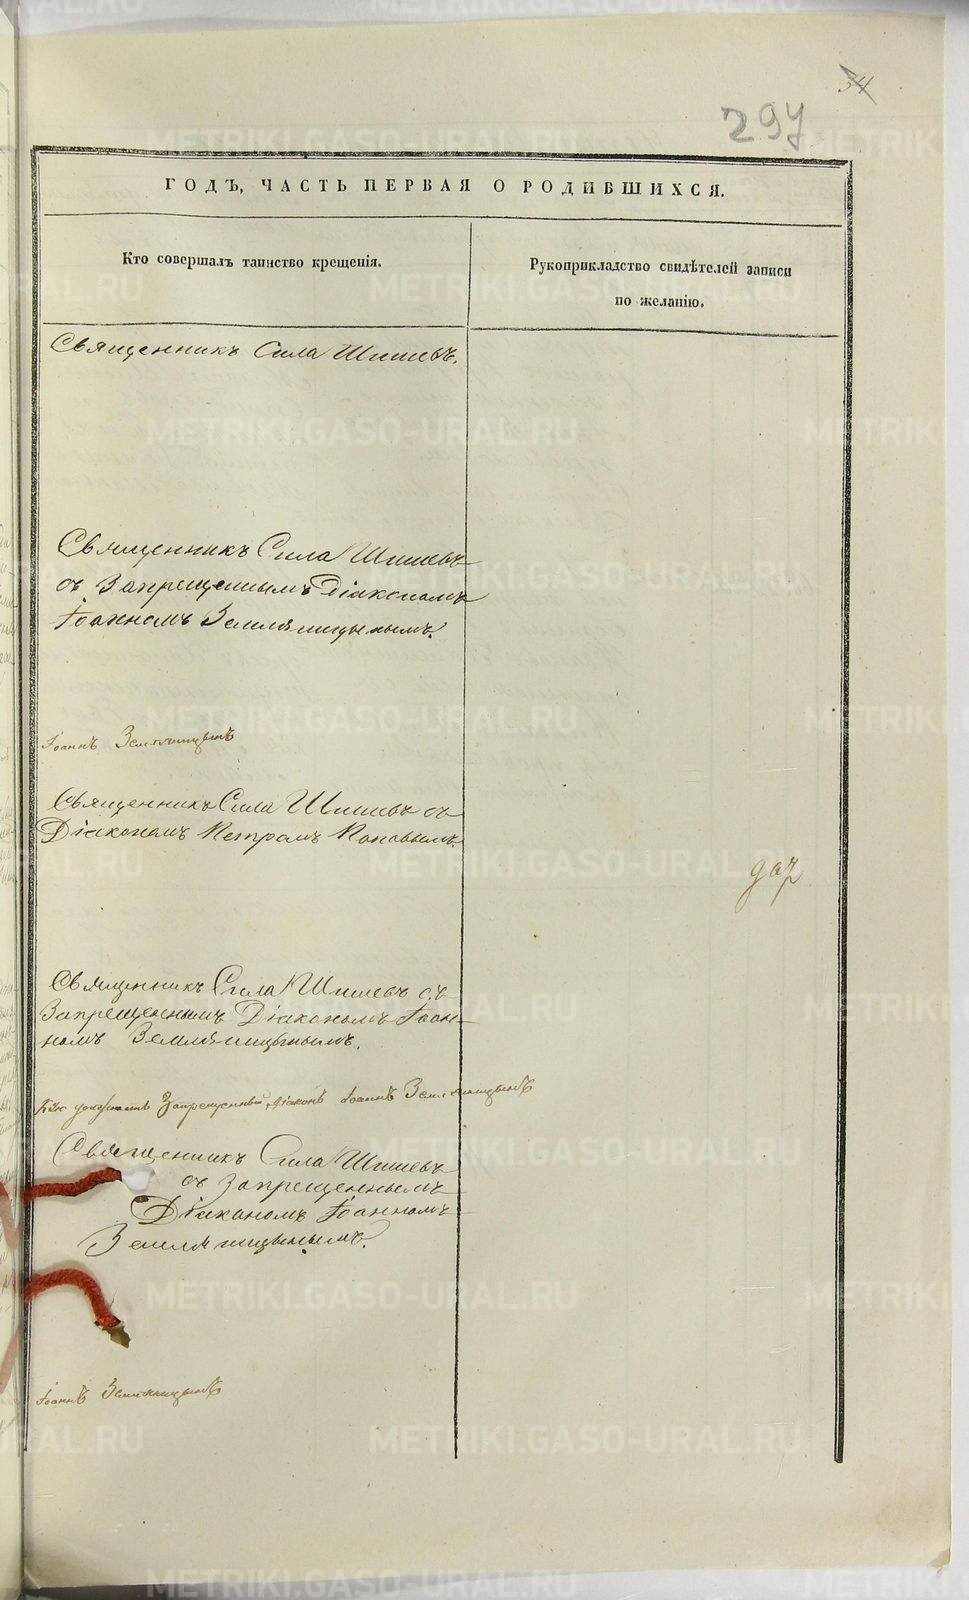 34
297
ГОДЪ, ЧАСТЬ ПЕРВАЯ О РОДИВШИХСЯ.
Кто совершалъ таинство крещенія.
Рукоприкладство свидѣтелей записи
по желанію.
Священникъ Сила Шишевъ.
Священникъ Сила Шишевъ
съ Запрещеннымъ Діакономъ
Іоанномъ Земляницынымъ.
Іоаннъ Земляницынъ
Священникъ Сила Шишевъ съ
Діакономъ Петромъ Поповымъ.
Священникъ Сила Шишевъ съ
Запрещеннымъ Діакономъ Іоан-
номъ Земляницынымъ.
Запрещенный Діаконъ Іоаннъ Земляницынъ
Священникъ Сила Шишевъ
съ Запрещеннымъ
Діакономъ Іоанномъ
Земляницынымъ.
Іоаннъ Земляницынъ
METRIKI.GASO-URAL.RU